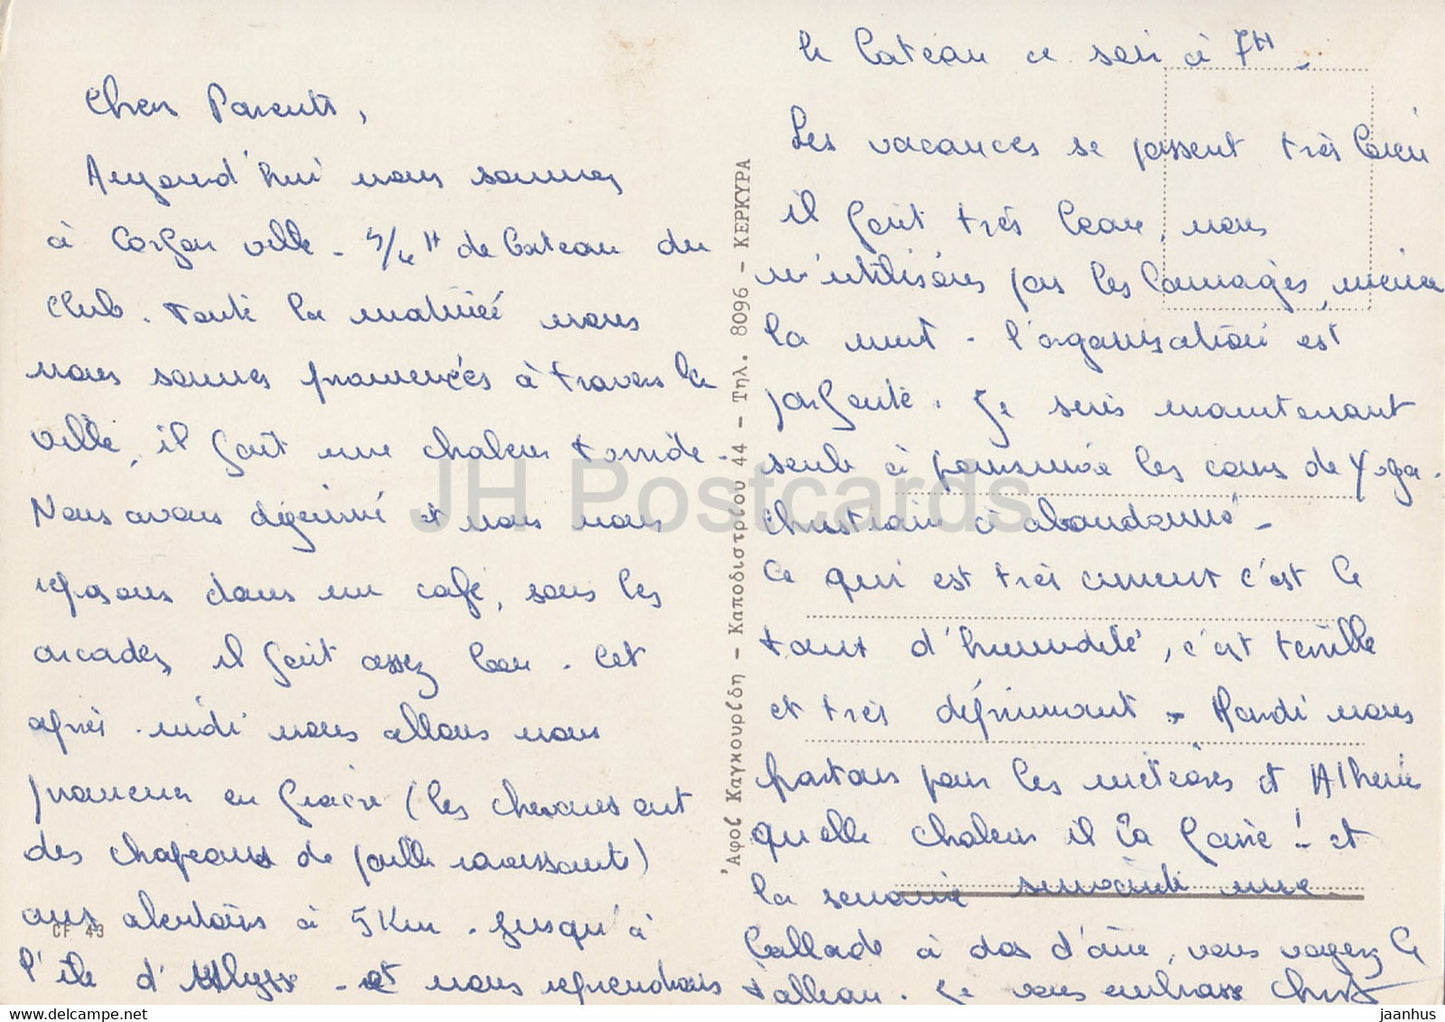 Chers Parents,
Aujourd'hui nous sommes
à Corfou ville - 3/4 H de bateau du
club. Toute la matinée nous
nous sommes promenées à travers la
ville, il fait une chaleur torride.
Nous avons déjeuné et nous nous
reposons dans un café, sous les
arcades, il fait assez bon. Cet
après-midi nous allons nous
promener en fiacre (les chevaux ont
des chapeaux de paille ravissants)
aux alentours à 5 Km. jusqu'à
l'île d'Ulysse - et nous reprendrons
le bateau ce soir à 7H.
Les vacances se passent très bien
il fait très beau, nous
n'utilisons pas les lainages, même
la nuit. L'organisation est
parfaite. Je suis maintenant
seule à poursuivre les cours de Yoga.
Christiane à abandonné.
Ce qui est très c'est le
taux d'humidité, c'est terrible
et très déprimant. Mardi nous
partons pour les météores et Athènes
quelle chaleur il va faire! et
la semaine suivante une
ballade à dos d'âne, vous voyez le
tableau. Je vous embrasse
'Αφοί Καγκουρίδη - Καποδιστρίου 44 - Τηλ. 8096 - ΚΕΡΚΥΡΑ
CF 43
JH Postcards
jaanhus